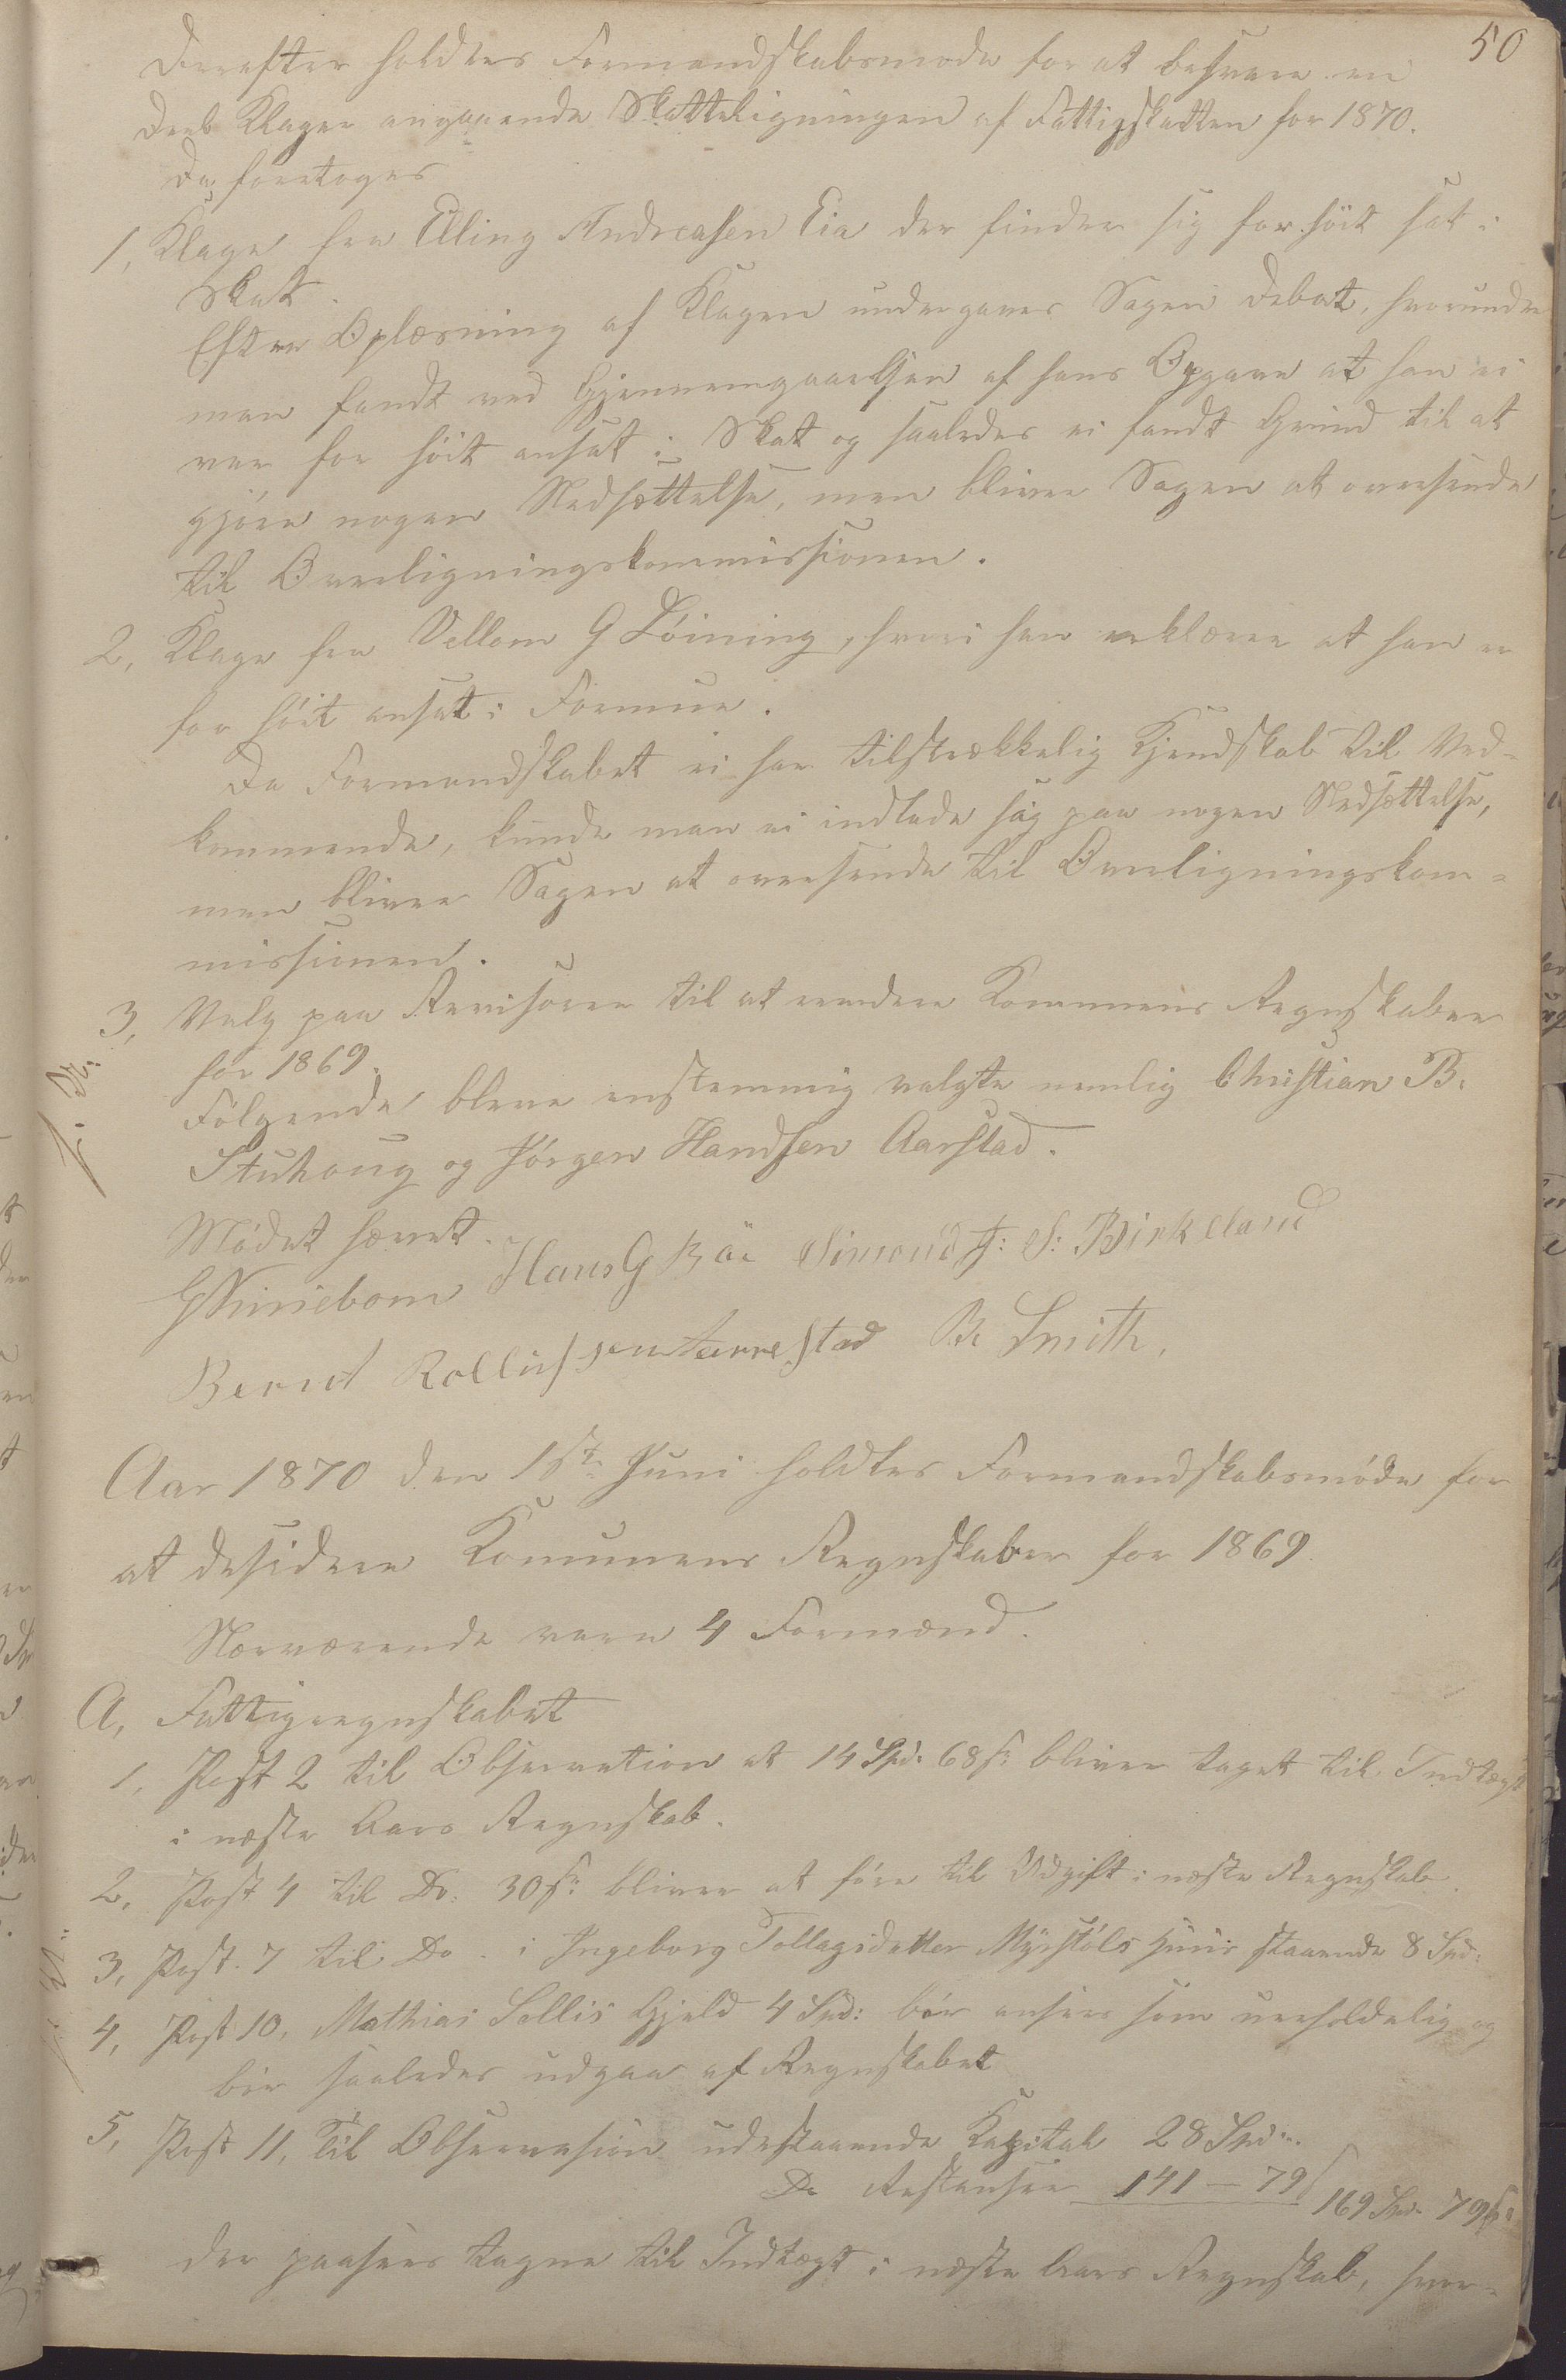 50
Derefter holdtes Formandskabsmøde for at besvare en
Deel Klager angaaende Skatteligningen af Fattigskatten for 1870.
Da foretoges
1, Klage fra Elling Andreasen Eia der finder sig for höit sat i
Skat.
Efter Oplæsning af Klagen undergaves Sagen Debat, hvorunder
man fandt ved Gjennemgaaelsen af hans Opgave at han ei
var for höit ansat i Skat og saaledes ei fandt Grund til at
gjöre nogen Nedsættelse, men bliver Sagen at oversende
til Overligningskommissionen.
2, Klage fra Vellom G Löining, hvori han erklærer at han er
for höit ansat i Formue.
Da Formandskabet ei har tilstrækkelig Kjendskab til Ved-
kommende, kunde man ei indlade sig paa nogen Nedsættelse,
men bliver Sagen at oversende til Overligningskom-
missionen.
3, Valg paa Revisorer til at revidere Kommunens Regnskaber
for 1869.
Fölgende bleve enstemmig valgte nemlig Christian B.
Stuhoug og Jörgen Handsen Aarstad.
Mödet hævet.
Hans G Böe Simond F: S: Birkeland
Bernt Rollufssen Aarrestad B. Smith,
Aar 1870 den 15de Juni holdtes Formandskabsmöde for
at desidere Kommunens Regnskaber for 1869
Nærværende vare 4 Formænd.
A, Fattigregnskabet
1, Post 2 til Observation at 14 Spd: 68 s: bliver taget til Indtægt
i næste Aars Regnskab.
2, Post 4 til Do: 30 s: bliver at före til Udgift i næste Regnskab.
3, Post 7 til Do. i Ingeborg Tollagsdatter Myrstöls Huus staaende 8 Spd:
4, Post 10, Mathias Sellis Gjeld 4 Spd: bör ansees som uerholdelig og
bör saaledes udgaa af Regnskabet
5, Post 11, Til Observasion udestaaende Kapital 28 Spd:
Do Restanser 141 - 79 169 Spd: 79 s:
der paasees tagne til Indtægt i næste Aars Regnskab, hvor-